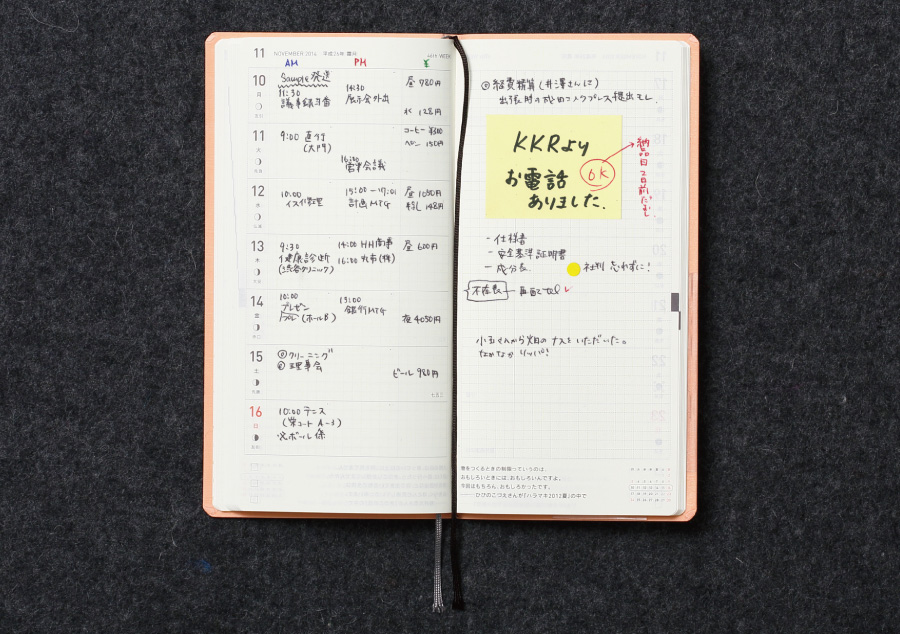 11 NOVEMBER 2014 平成26年 霜月
46th WEEK
AM PM ¥
10 Sample発送 昼 780円
月 11:30 14:30
議事録当番 展示会外出
水 128円
11 9:00 直行 コーヒー ¥300
火 (大門) ペン 150円
16:30
電車会議
12 10:00 15:00-17:01 昼 1050円
水 計画MTG
13 9:30 14:00 HH商事 昼 600円
木 健康診断 16:00
(渋谷クリニック)
14 10:00 15:00
金 プレゼン 銀行MTG
(ホールB) 夜 4050円
15 ◎クリーニング
土 ◎理事会
ビール 980円
七五三
16 10:00 テニス
日 (柴コート A-3)
※ボール係
◎経費精算(井澤さんに)
出張時の成田エクスプレス提出モレ.
KKRより
お電話 6K
ありました.
納品日2日前だそ
- 仕様書
- 安全基準証明書
- 成分表 社判 忘れずに!
不在表 — 再配Tel ✓
小玉さんから畑のナスをいただいた。
なかなかリッパ!
巻をつくるときの制限っていうのは、
おもしろいときには、おもしろいんですよ。
今回はもちろん、おもしろかったです。
——ひびのこづえさんが「ハラマキ2012夏」の中で